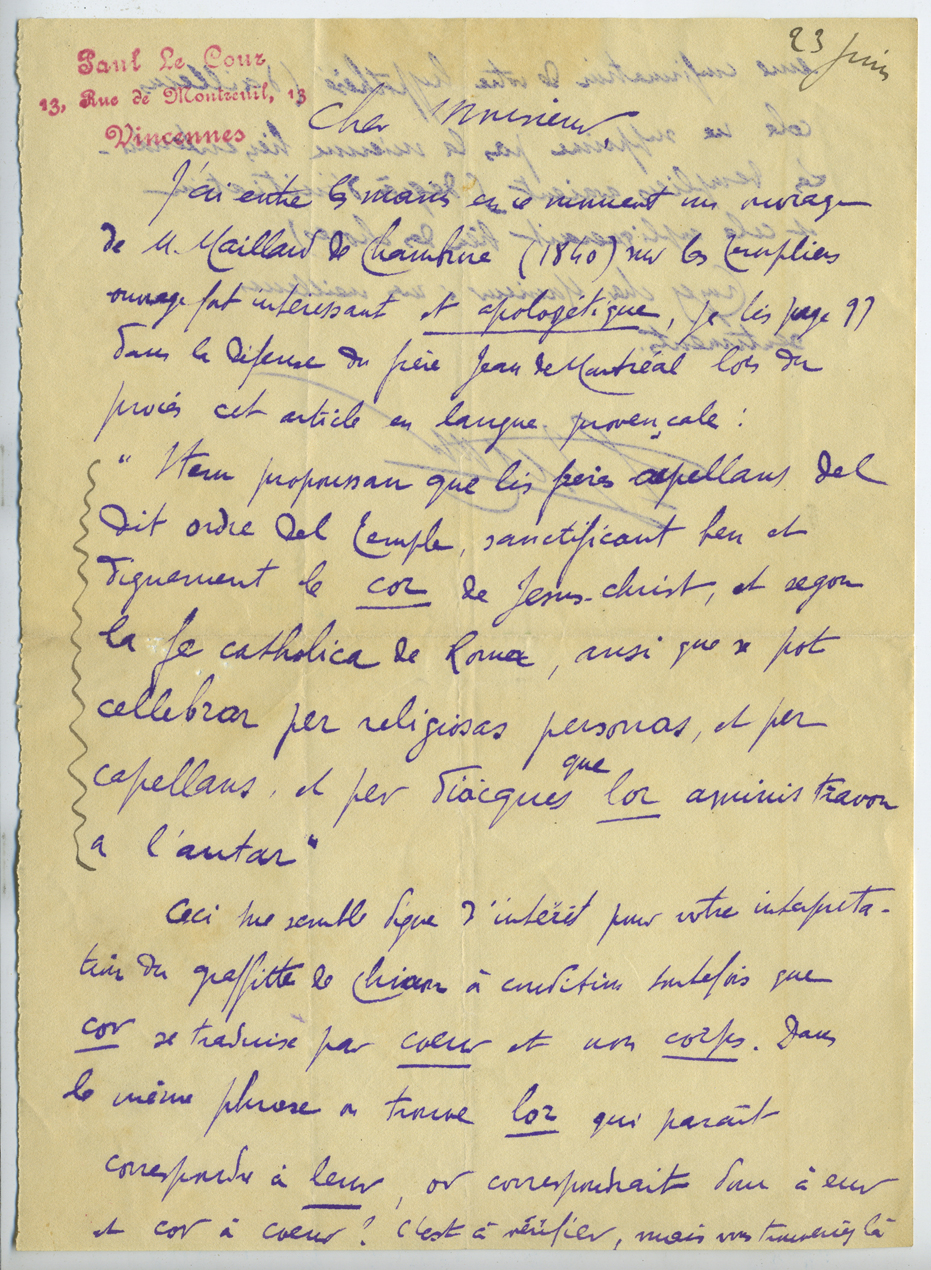 Paul Le Cour
13, Rue de Montreuil, 13
Vincennes
23 juin
Cher Monsieur,
J'ai entre les mains en ce moment un ouvrage
de M. Maillard de Chambure (1840) sur les Templiers
ouvrage fort intéressant et apologétique, je lis page 97
dans la défense du frère Jean de Montréal lors du
procès cet article en langue provençale :
" Item propoussan que lis frères capellans del
dit ordre del Temple, sanctificant ben et
dignement le cor de Jesus-Christ, et segon
la fe catholica de Roma, ansi que se pot
cellebrar per religiosas personas, et per
capellans, et per diacques que lor aministravon
a l'autar"
Ceci me semble digne d'intérêt pour votre interpréta-
tion du graffitte de Chinon à condition toutefois que
cor se traduise par coeur et non corps. Dans
la même phrase on trouve lor qui paraît
correspondre à leur, or correspondrait donc à eur
et cor à coeur ? C'est à vérifier, mais vous trouveriez là